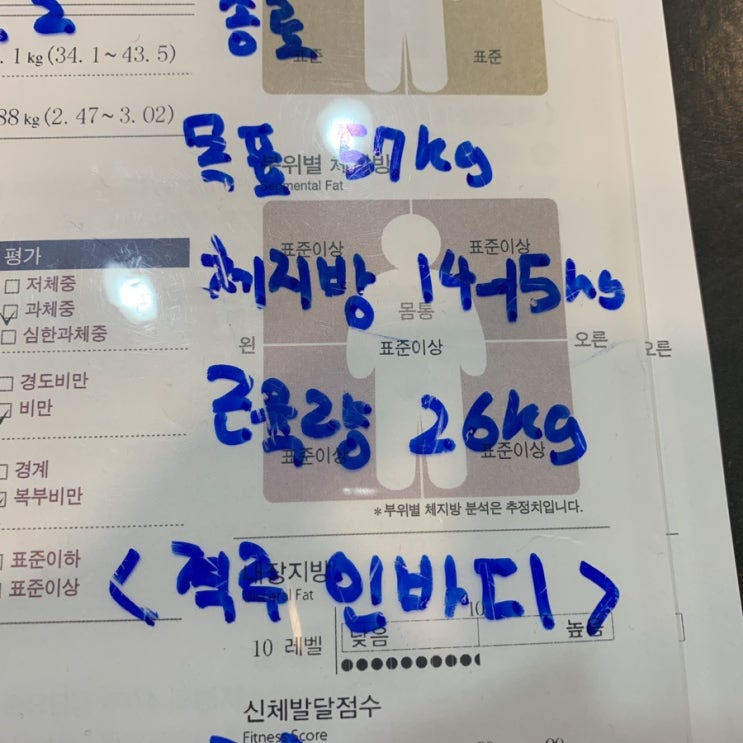 . 2 종료
. 1 kg (34. 1~43. 5) 표준 표준
88 kg (2. 47~3. 02)
목표 57kg
부위별 체지방
Segmental Fat
평가
표준이상 표준이상
저체중
체지방 14-15kg
과체중
몸통
심한과체중
왼 표준이상 오른 오른
경도비만
비만
근육량 26kg
표준이상 표준이상
경계
복부비만
*부위별 체지방 분석은 추정치입니다.
표준이하
내장지방
<격주 인바디>
표준이상
Visceral Fat
10
10 레벨 낮음 높음
신체발달점수
Fitness Score